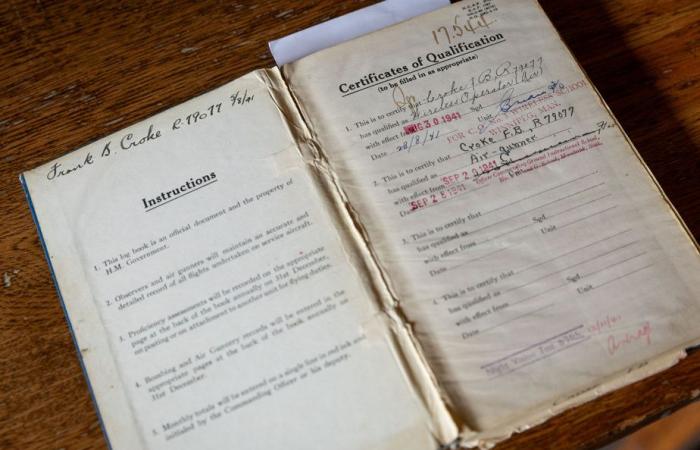 Frank B. Croke R.79077 9/8/41
Instructions
1. This log book is an official document and the property of
H.M. Government.
2. Observers and air gunners will maintain an accurate and
detailed record of all flights undertaken on service aircraft.
3. Proficiency assessments will be recorded on the appropriate
page at the back of the book annually on 31st December,
on posting or on attachment to another unit for flying duties.
4. Bombing and Air Gunnery records will be entered in the
appropriate pages at the back of the book annually on
31st December.
5. Monthly totals will be entered on a single line in red ink and
initialed by the Commanding Officer or his deputy.
17.544
Certificates of Qualification
(to be filled in as appropriate)
1. This is to certify that Croke F B. R79077
has qualified as Wireless Operator (Air)
with effect from AUG 30 1941 Sgd.
Date 28/8/41 Unit
WINNIPEG, MAN.
2. This is to certify that Croke F.B. R79077
has qualified as Air Gunner
with effect from SEP 29 1941
Date SEP 28 1941
3. This is to certify that
has qualified as Sgd.
with effect from Unit
Date
4. This is to certify that
has qualified as Sgd.
with effect from Unit
Date
Night Vision Test